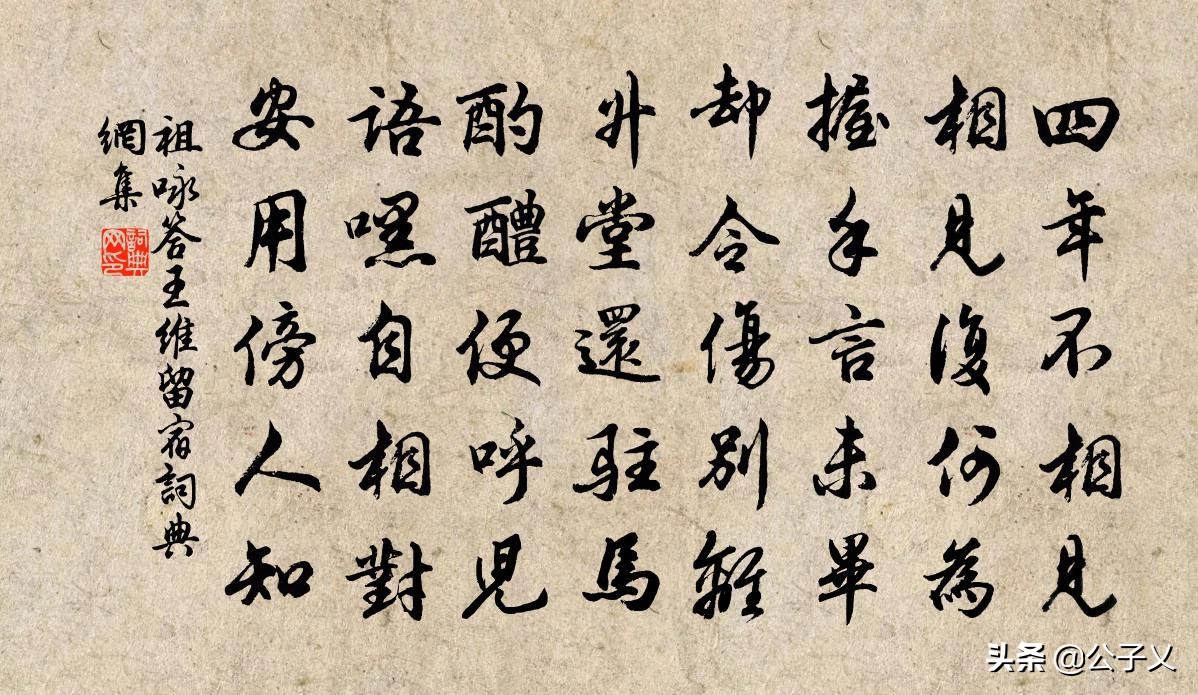 四年不相見
相見復何為
握手言未畢
却令傷別離
升堂還駐馬
酌醴便呼兒
語嘿自相對
安用傍人知
祖咏答王維留宿詞典
網集
詞典網印
头条 @公子义